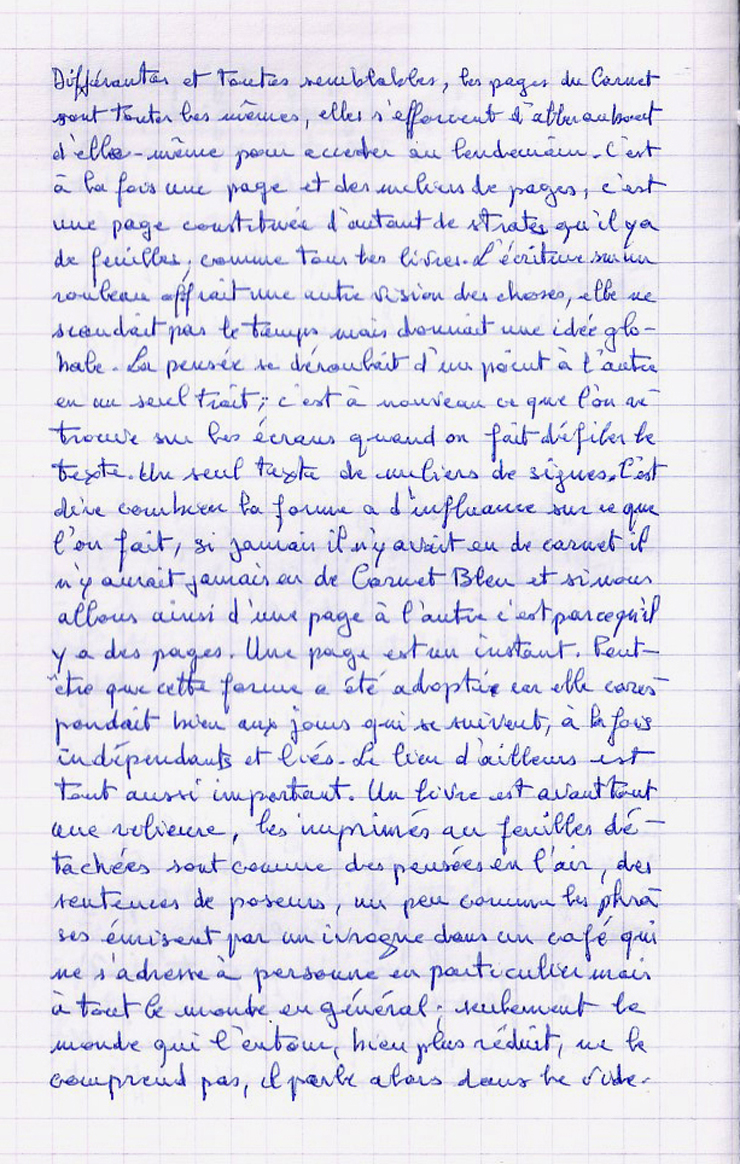 Différentes et toutes semblables, les pages du Carnet
sont toutes les mêmes, elles s'efforcent d'aller au bout
d'elle-même pour acceder au lendemain. C'est
à la fois une page et des milliers de pages, c'est
une page constituée d'autant de strates qu'il y a
de feuilles, comme tous les livres. L'écriture sur un
rouleau offrait une autre vision des choses, elle ne
scandait pas le temps mais donnait une idée glo-
bale. La pensée se déroulait d'un point à l'autre
en un seul trait; c'est à nouveau ce que l'on re
trouve sur les écrans quand on fait défiler le
texte. Un seul texte de milliers de signes. C'est
dire combien la forme a d'influence sur ce que
l'on fait, si jamais il n'y avait eu de carnet il
n'y aurait jamais eu de Carnet Bleu et si nous
allons ainsi d'une page à l'autre c'est parce qu'il
y a des pages. Une page est un instant. Peut-
être que cette forme a été adoptée car elle cores
pondait bien aux jours qui se suivent, à la fois
indépendants et liés. Le lien d'ailleurs est
tout aussi important. Un livre est avant tout
une relieure, les imprimés au feuilles dé-
tachées sont comme des pensées en l'air, des
sentences de poseurs, un peu comme les phra
ses émisent par un ivrogne dans un café qui
ne s'adresse à personne en particulier mais
à tout le monde en général; seulement le
monde qui l'entour, bien plus réduit, ne le
comprend pas, il parle alors dans le vide.